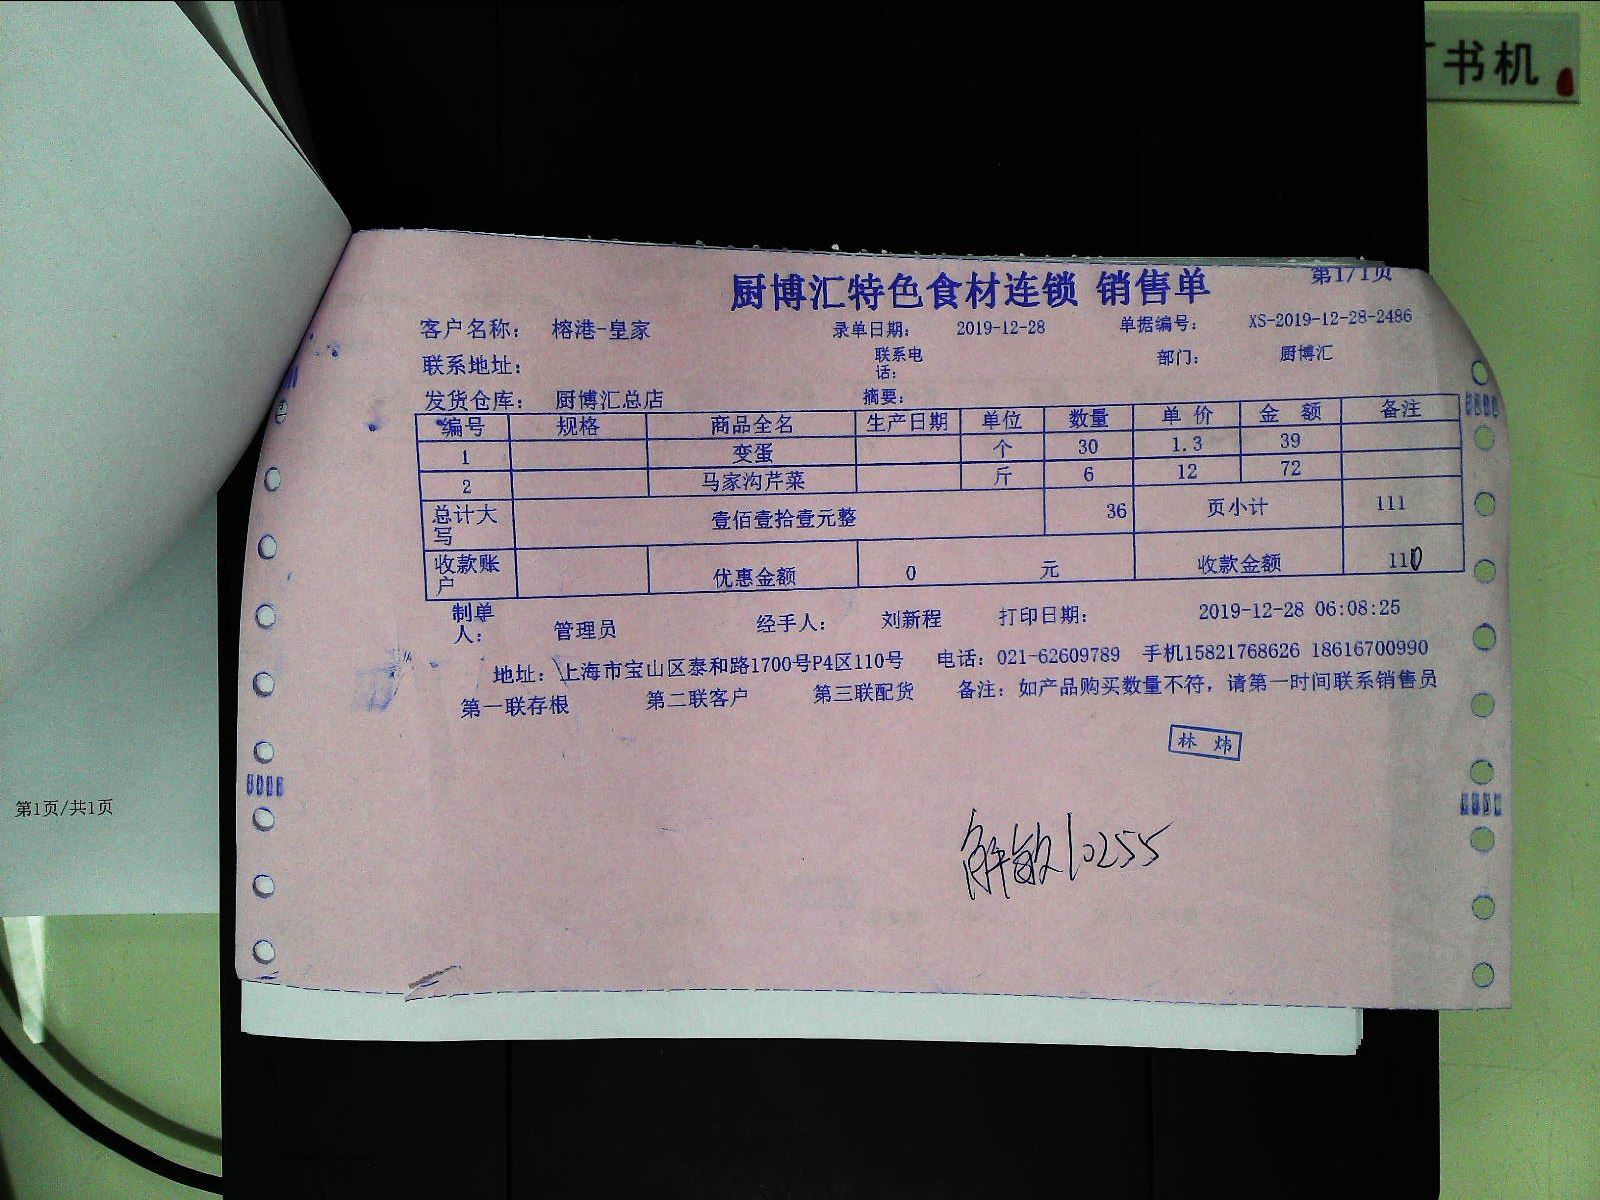 书机
厨博汇特色食材连锁 销售单
第1/1页
客户名称: 榕港-皇家 录单日期: 2019-12-28 单据编号: XS-2019-12-28-2486
联系地址: 联系电话: 部门: 厨博汇
发货仓库: 厨博汇总店 摘要:
编号 规格 商品全名 生产日期 单位 数量 单 价 金 额 备注
1 变蛋 个 30 1.3 39
2 马家沟芹菜 斤 6 12 72
总计大写 壹佰壹拾壹元整 36 页小计 111
收款账户 优惠金额 0 元 收款金额 110
制单人: 管理员 经手人: 刘新程 打印日期: 2019-12-28 06:08:25
地址: 上海市宝山区泰和路1700号P4区110号 电话: 021-62609789 手机15821768626 18616700990
第一联存根 第二联客户 第三联配货 备注: 如产品购买数量不符, 请第一时间联系销售员
林 炜
解敏10255
第1页/共1页